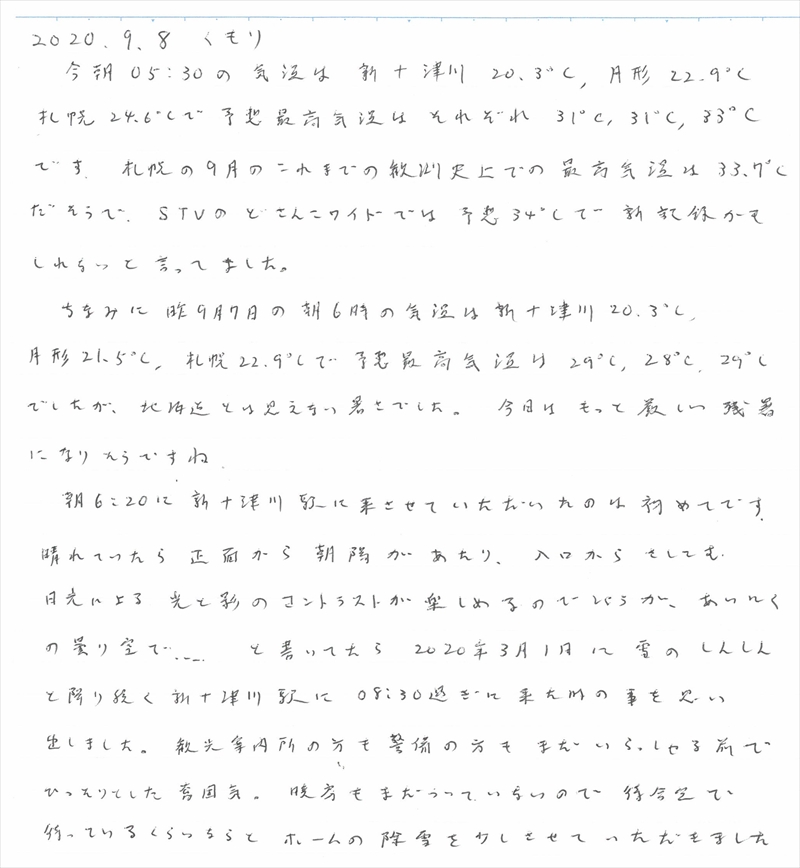 2020.9.8 くもり
今朝05:30の気温は 新十津川 20.3℃, 月形 22.9℃
札幌 24.6℃で予想最高気温は それぞれ 31℃, 31℃, 33℃
です. 札幌の9月のこれまでの観測史上での最高気温は33.7℃
だそうで. STVのどさんこワイドでは 予想34℃で新記録かも
しれないと言ってました。
ちなみに 昨9月7日の朝6時の気温は新十津川20.3℃,
月形21.5℃, 札幌22.9℃で予想最高気温は29℃, 28℃, 29℃
でしたが、北海道とは思えない暑さでした。 今日は もっと厳しい残暑
になりそうですね.
朝6:20に新十津川駅に来させていただいたのは初めてです.
晴れていたら 正面から 朝陽があたり、入口から さしこむ
日光による 光と影のコントラストが楽しめるのでしょうが、あいにく
の曇り空で...... と書いてたら 2020年3月1日に雪のしんしん
と降り続く新十津川駅に 08:30過ぎに来た時の事を思い
出しました。観光案内所の方も警備の方も まだいらっしゃる前で
ひっそりとした雰囲気。 暖房もまだ入っていないので 待合室で
待っているくらいならと ホームの除雪を少しさせていただきました